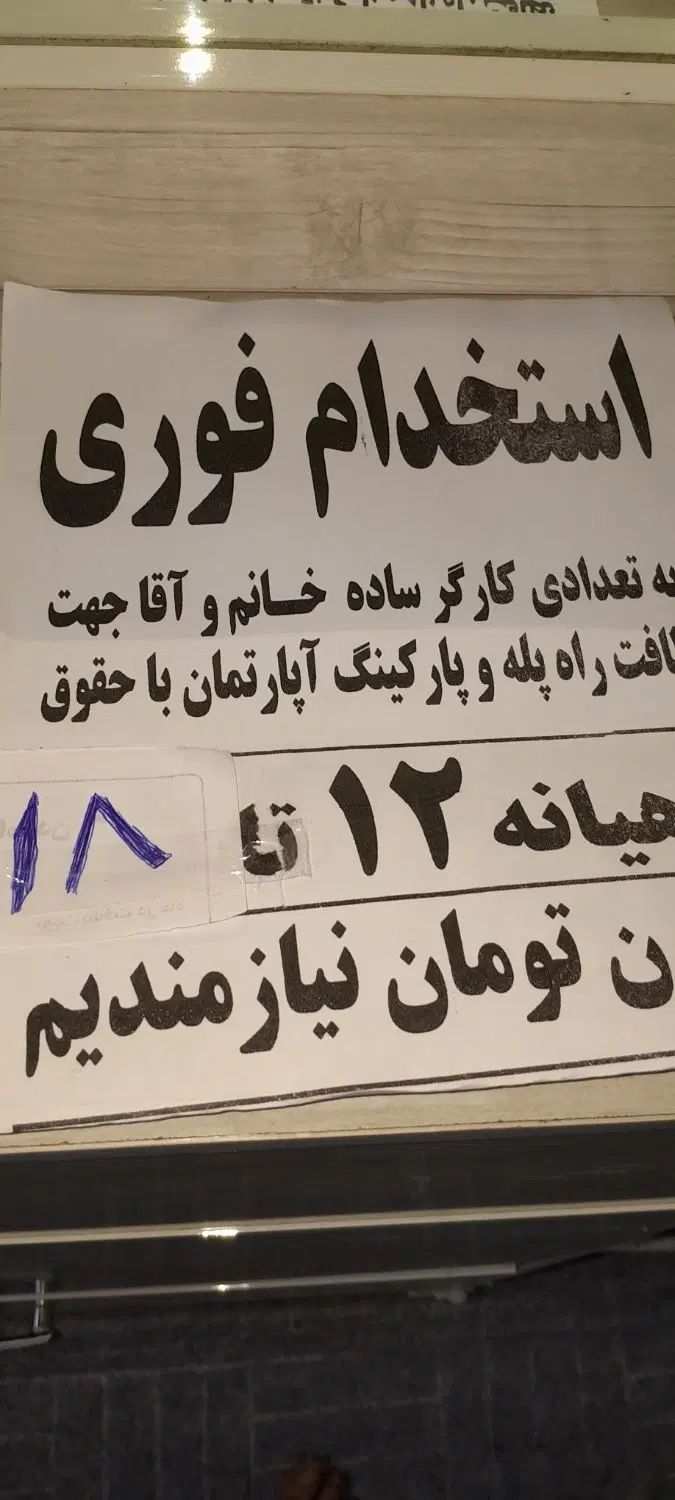 استخدام فوری
به تعدادی کارگر ساده خانم و آقا جهت
راه پله و پارکینگ آپارتمان با حقوق
۱۲ تا ۱۸
تومان نیازمندیم